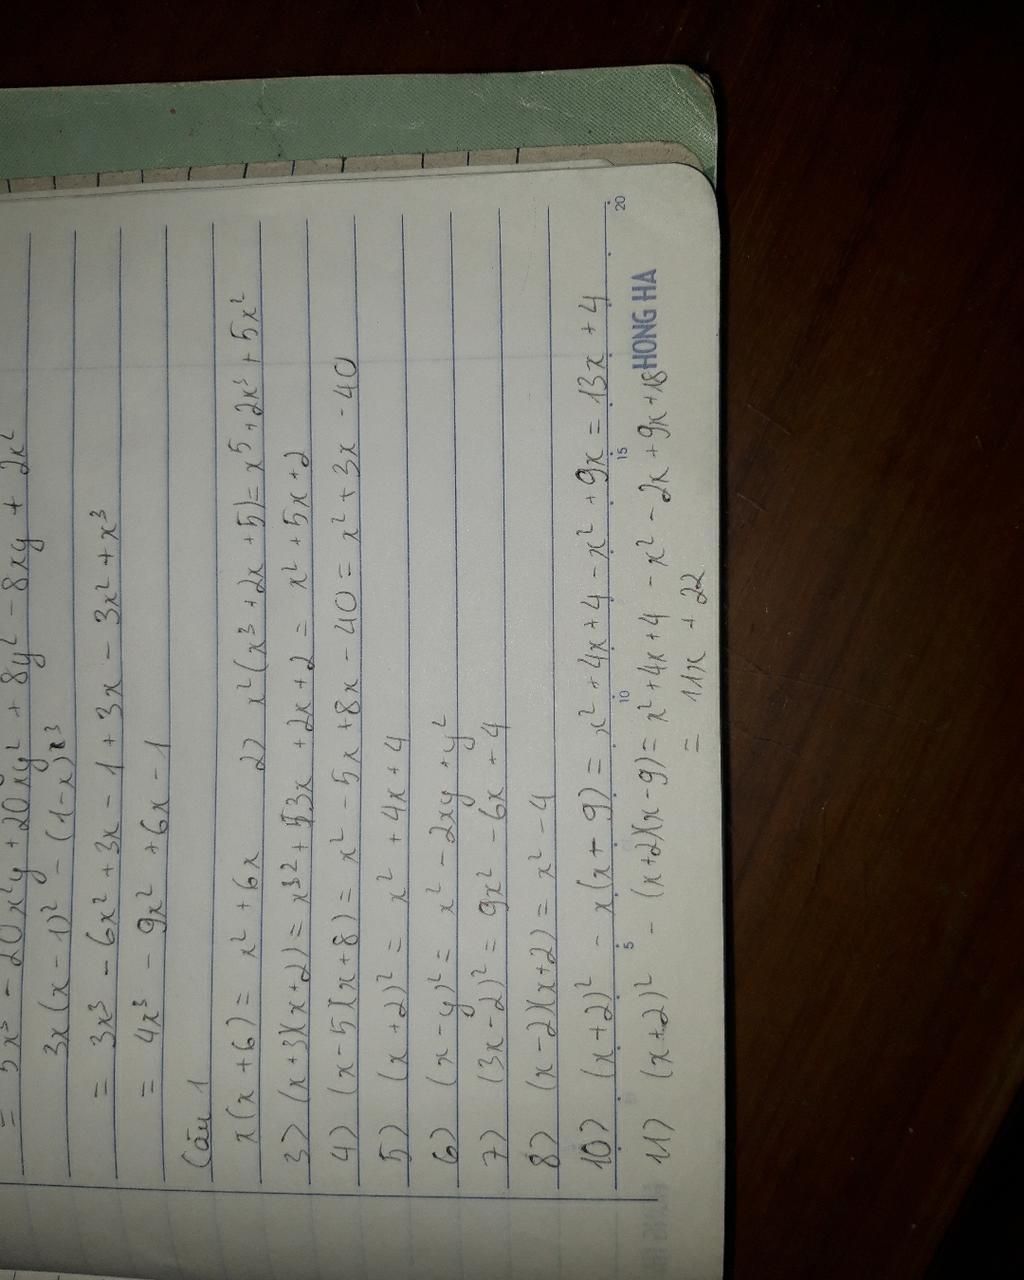 = 5x³ - 20x²y + 20xy² + 8y² - 8xy + 2x²
3x(x-1)² - (1-x)³
= 3x³ - 6x² + 3x - 1 + 3x - 3x² + x³
= 4x³ - 9x² + 6x - 1
Câu 1
x(x+6) = x² + 6x 2) x²(x³+2x+5) = x⁵ + 2x³ + 5x²
3) (x+3)(x+2) = x² + 3x + 2x + 2 = x² + 5x + 2
4) (x-5)(x+8) = x² - 5x + 8x - 40 = x² + 3x - 40
5) (x+2)² = x² + 4x + 4
6) (x-y)² = x² - 2xy + y²
7) (3x-2)² = 9x² - 6x + 4
8) (x-2)(x+2) = x² - 4
10) (x+2)² - x(x+9) = x² + 4x + 4 - x² + 9x = 13x + 4
5 10 15 20
11) (x+2)² - (x+2)(x-9) = x² + 4x + 4 - x² - 2x + 9x + 18
HONG HA
= 11x + 22